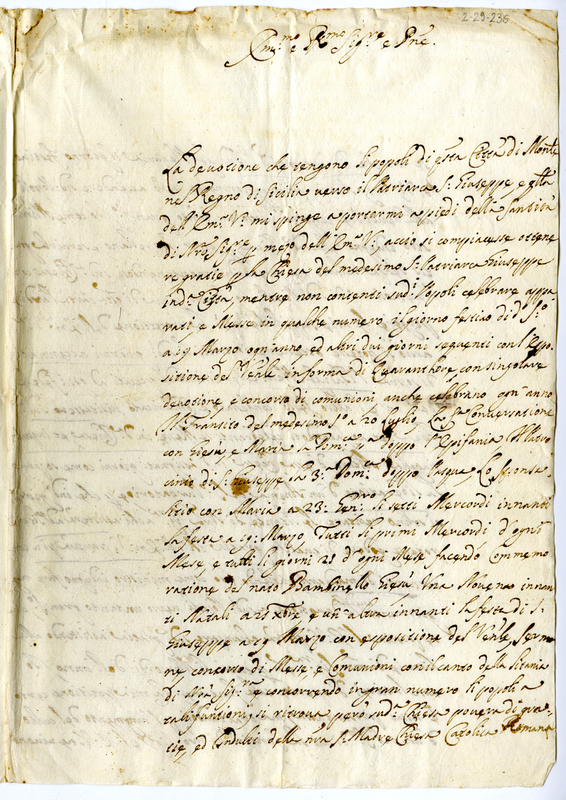 2-29-236
Em.mo e R.mo Sig.re e Pne.
La devotione che tengono li popoli di q.sta Città di Monte
nel Regno di Sicilia verso il Patriarca S. Giuseppe e q.lla
dell'Em.a V.a mi spinge a portarmi a piedi della santità
di Nro Sig.re p mezo dell'Em.a V.a, acciò si compiacesse ottene
re gratie p la Chiesa del medesimo S. Patriarca Giuseppe
in d.a Città, mentre non contenti sud.i Popoli celebrare appa
rati e Messe in qualche numero il giorno festivo di d.o S.to
a 19 Marzo ogn'anno, ed altri dui giorni seguenti con l'Espo
sitione del Ven.le in forma di Quaranthore con singolare
devotione e concorso di comunioni anche celebrano ogn'anno
il Transito del medesimo S.to a 20 Luglio, La Conversatione
con Giesù, e Maria la Dom.ca p.a doppo l'Epifania Il Patro
cinio di S. Giuseppe la 3.a Dom.ca doppo Pasqua, Lo Sponsa
litio con Maria a 23: Gen.ro li setti Mercordì innanti
la festa a 19: Marzo, Tutti li primi Mercordì d'ogni
Mese, e tutti li giorni 25 d'ogni Mese facendo Commemo
ratione del nato Bambinello Giesù Una Novena innan
ti Natali a 25 Xbre e un'altra innanti la festa di S.
Giuseppe a 19 Marzo con espositione del Ven.le, Sermo
ne concorso di Messe, e Comunioni con il canto della litania
di Nra Sig.ra e concorrendo in gran numero li popoli a
tali funtioni, si ritrova però sud.a Chiesa povera di gra
tie, ed Indulti della nra S. Madre Chiesa Catolica Romana